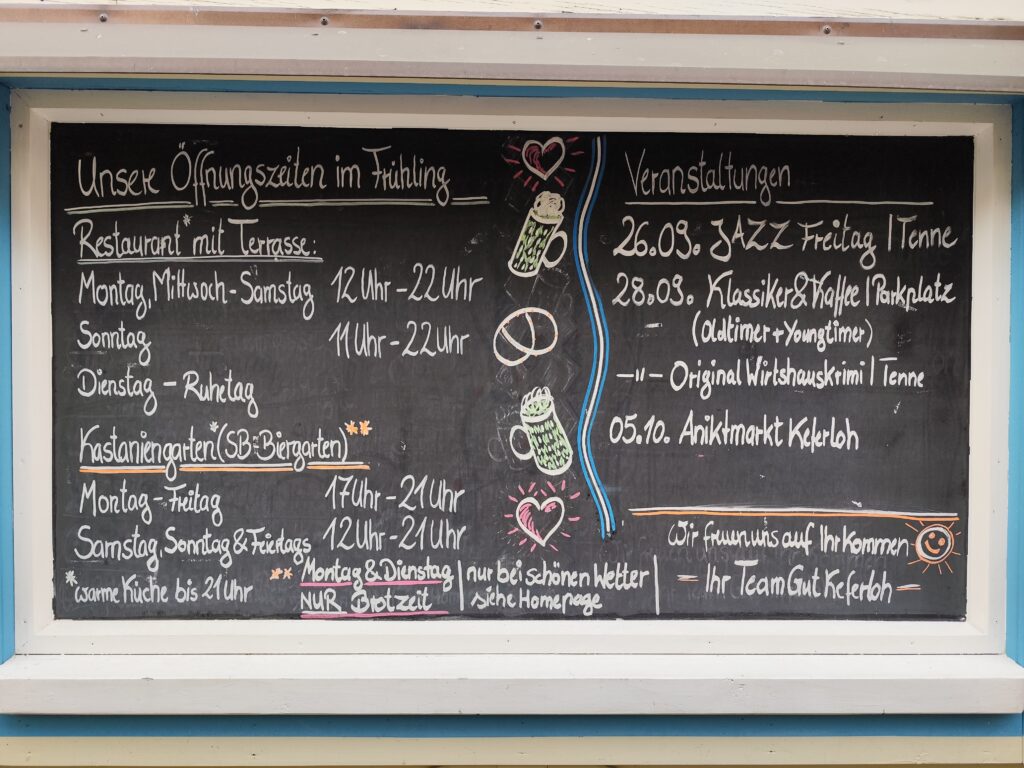 Unsere Öffnungszeiten im Frühling
Restaurant* mit Terrasse:
Montag, Mittwoch - Samstag 12 Uhr - 22 Uhr
Sonntag 11 Uhr - 22 Uhr
Dienstag - Ruhetag
Kastaniengarten* (SB-Biergarten)**
Montag - Freitag 17 Uhr - 21 Uhr
Samstag, Sonntag & Feiertags 12 Uhr - 21 Uhr
*warme Küche bis 21 Uhr
** Montag & Dienstag | nur bei schönen Wetter |
NUR Brotzeit | siehe Homepage |
Veranstaltungen
26.09. JAZZ Freitag | Tenne
28.09. Klassiker & Kaffee | Parkplatz
(Oldtimer + Youngtimer)
—"— Original Wirtshauskrimi | Tenne
05.10. Aniktmarkt Keferloh
Wir freuen uns auf Ihr Kommen
- Ihr Team Gut Keferloh -